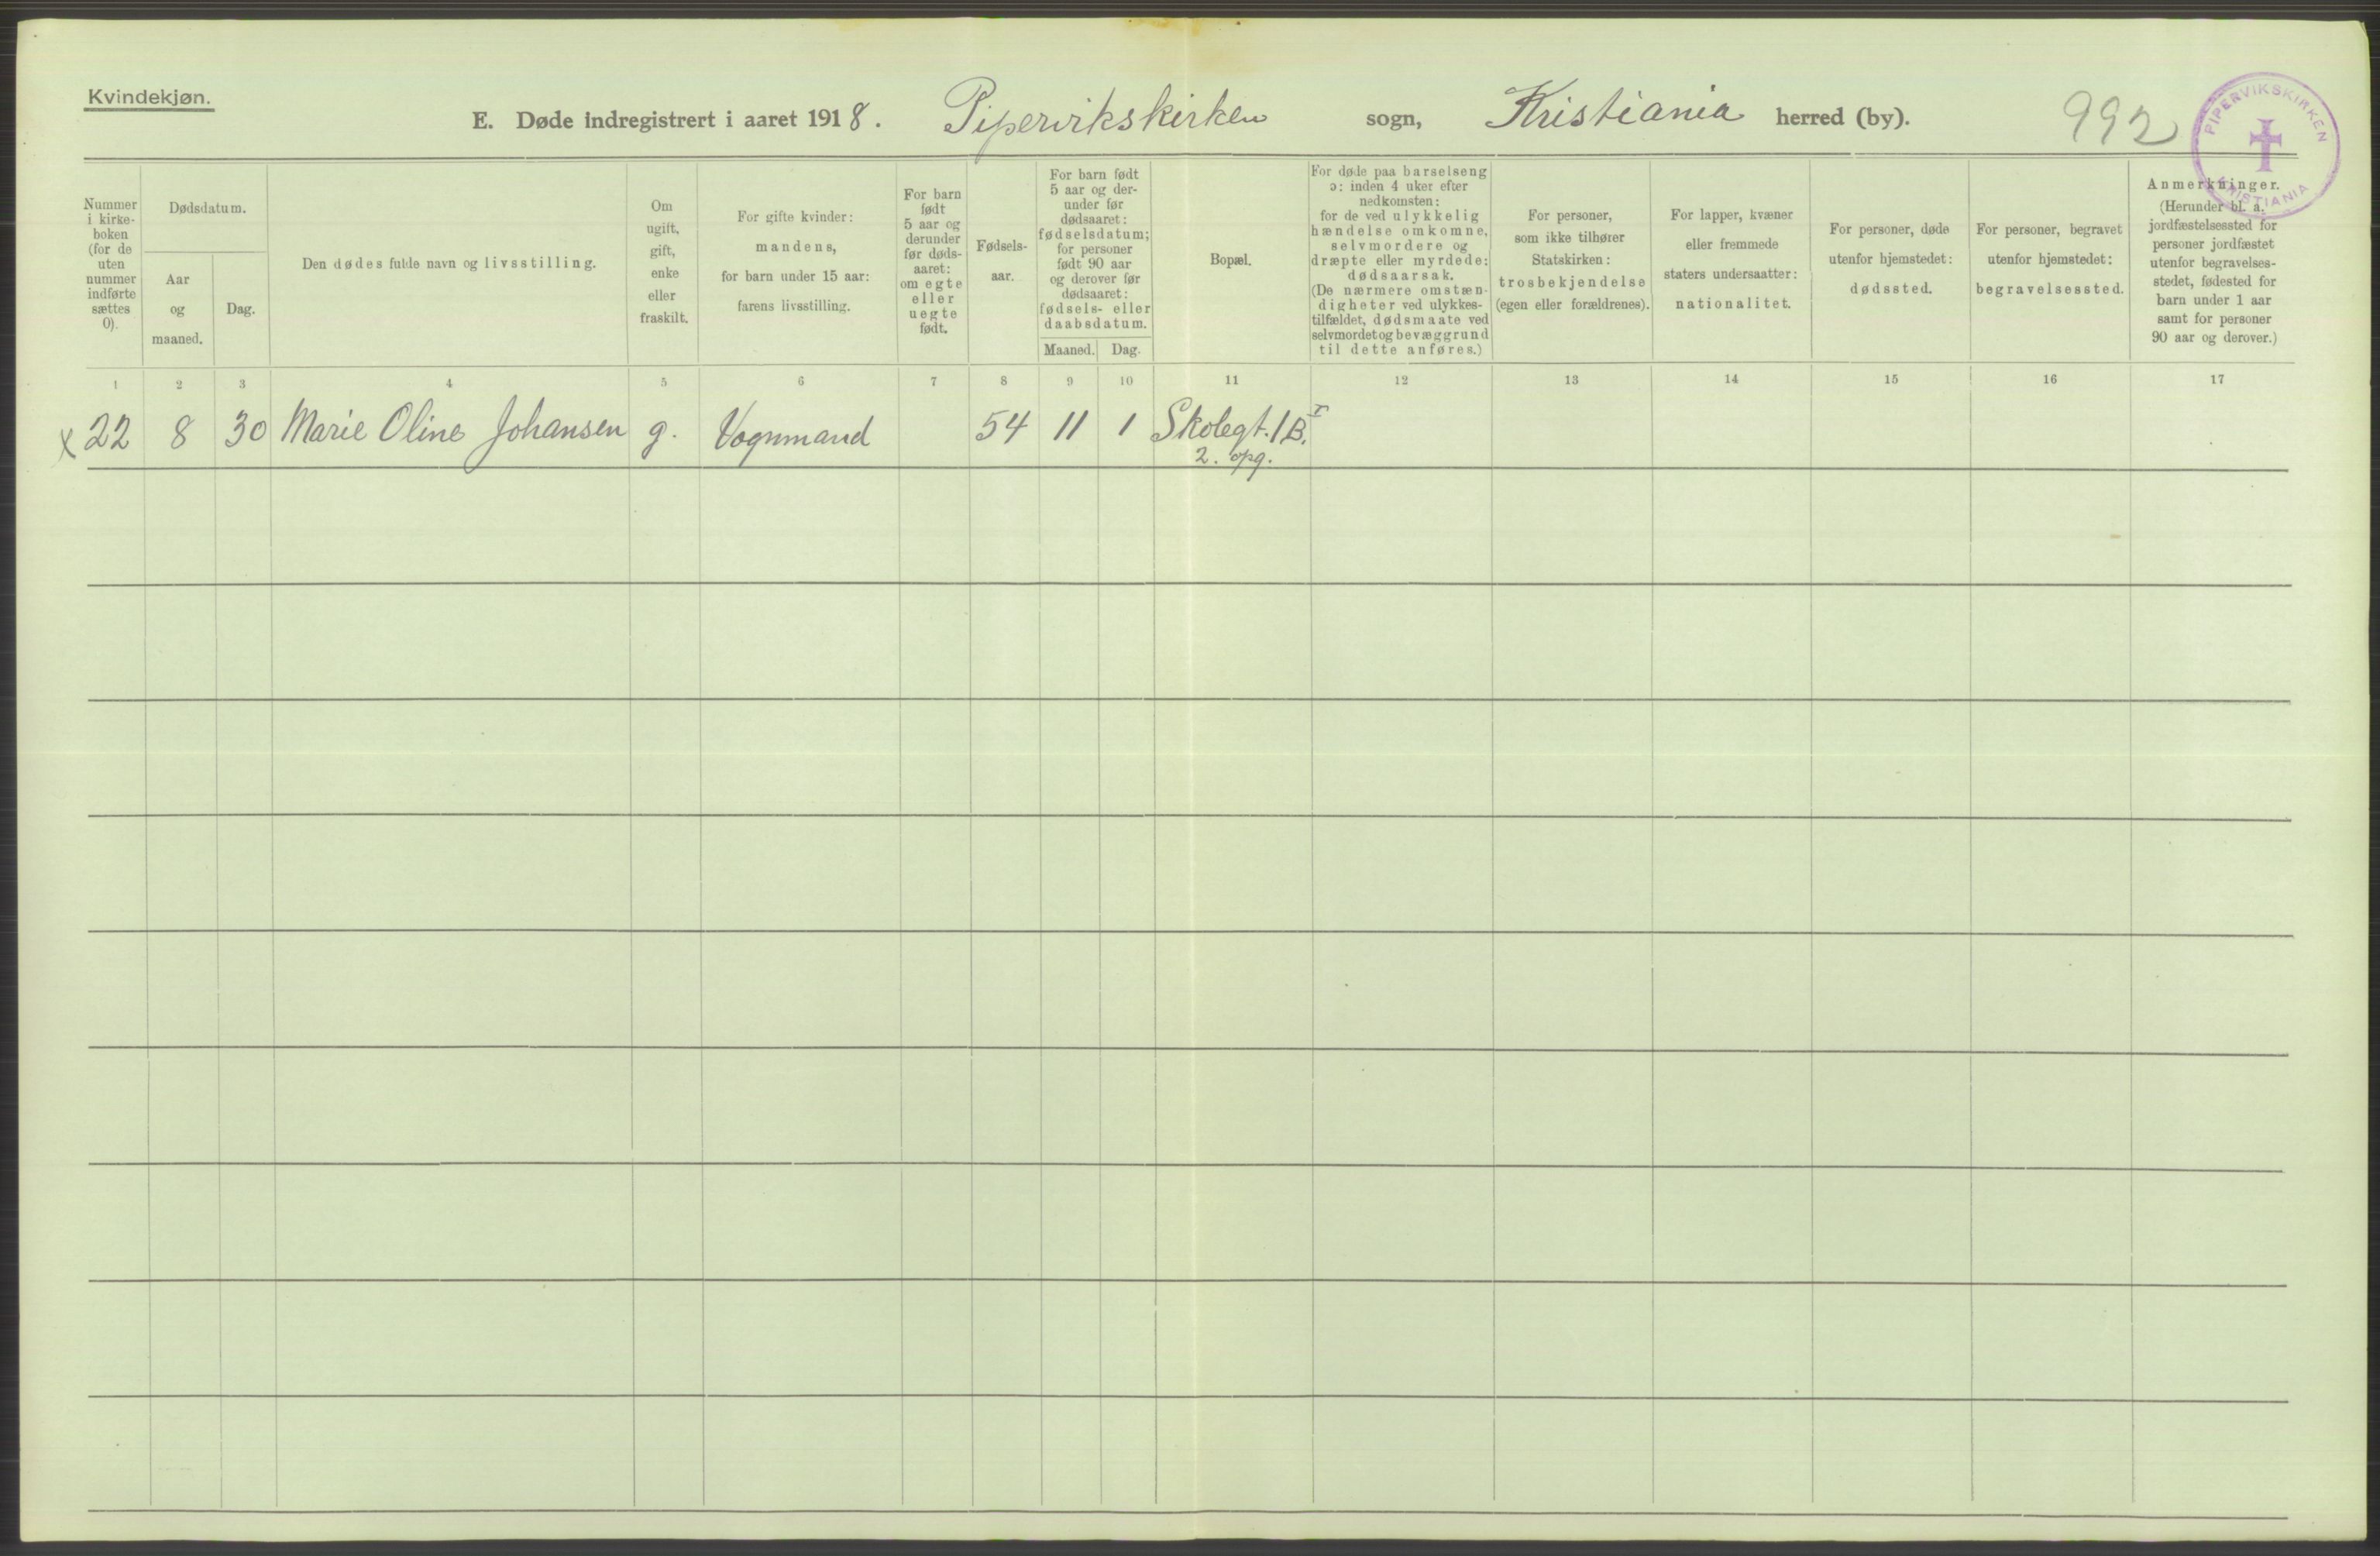 Kvindekjøn.
E. Døde indregistrert i aaret 1918. Pipervikskirken sogn, Kristiania herred (by). 992
PIPERVIKSKIRKEN
KRISTIANIA
Nummer
i kirke-
boken
(for de
uten
nummer
indførte
sættes
0).
Dødsdatum.
Aar
og
maaned.
Dag.
Den dødes fulde navn og livsstilling.
Om
ugift,
gift,
enke
eller
fraskilt.
For gifte kvinder:
mandens,
for barn under 15 aar:
farens livsstilling.
For barn
født
5 aar og
derunder
før døds-
aaret:
om egte
eller
uegte
født.
Fødsels-
aar.
For barn født
5 aar og der-
under før
dødsaaret:
fødselsdatum;
for personer
født 90 aar
og derover før
dødsaaret:
fødsels- eller
daabsdatum.
Maaned. Dag.
Bopæl.
For døde paa barselseng
ɔ: inden 4 uker efter
nedkomsten:
for de ved ulykkelig
hændelse omkomne,
selvmordere og
dræpte eller myrdede:
dødsaarsak.
(De nærmere omstæn-
digheter ved ulykkes-
tilfældet, dødsmaate ved
selvmordet og bevæggrund
til dette anføres.)
For personer,
som ikke tilhører
Statskirken:
trosbekjendelse
(egen eller forældrenes).
For lapper, kvæner
eller fremmede
staters undersaatter:
nationalitet.
For personer, døde
utenfor hjemstedet:
dødssted.
For personer, begravet
utenfor hjemstedet:
begravelsessted.
Anmerkninger.
(Herunder bl. a.
jordfæstelsessted for
personer jordfæstet
utenfor begravelses-
stedet, fødested for
barn under 1 aar
samt for personer
90 aar og derover.)
1 2 3 4 5 6 7 8 9 10 11 12 13 14 15 16 17
x 22 8 30 Marie Oline Johansen g. Vognmand 54 11 1 Skolegt. 1 B. I
2. opg.